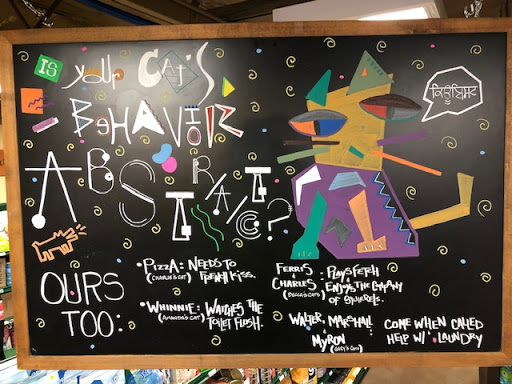 IS YOUR CAT'S
BEHAVIOR
ABSTRACT?
OURS
TOO:
• PIZZA: NEEDS TO
(CHARLIE'S CAT) FRENCH KISS.
• WHINNIE: WATCHES THE
(AMANDA'S CAT) TOILET FLUSH.
FERRIS: PLAYS FETCH
CHARLES: ENJOYS THE COMPANY
(BECCA'S CATS) OF SQUIRRELS.
WALTER, MARSHALL
MYRON
COME WHEN CALLED
HELP W/ LAUNDRY